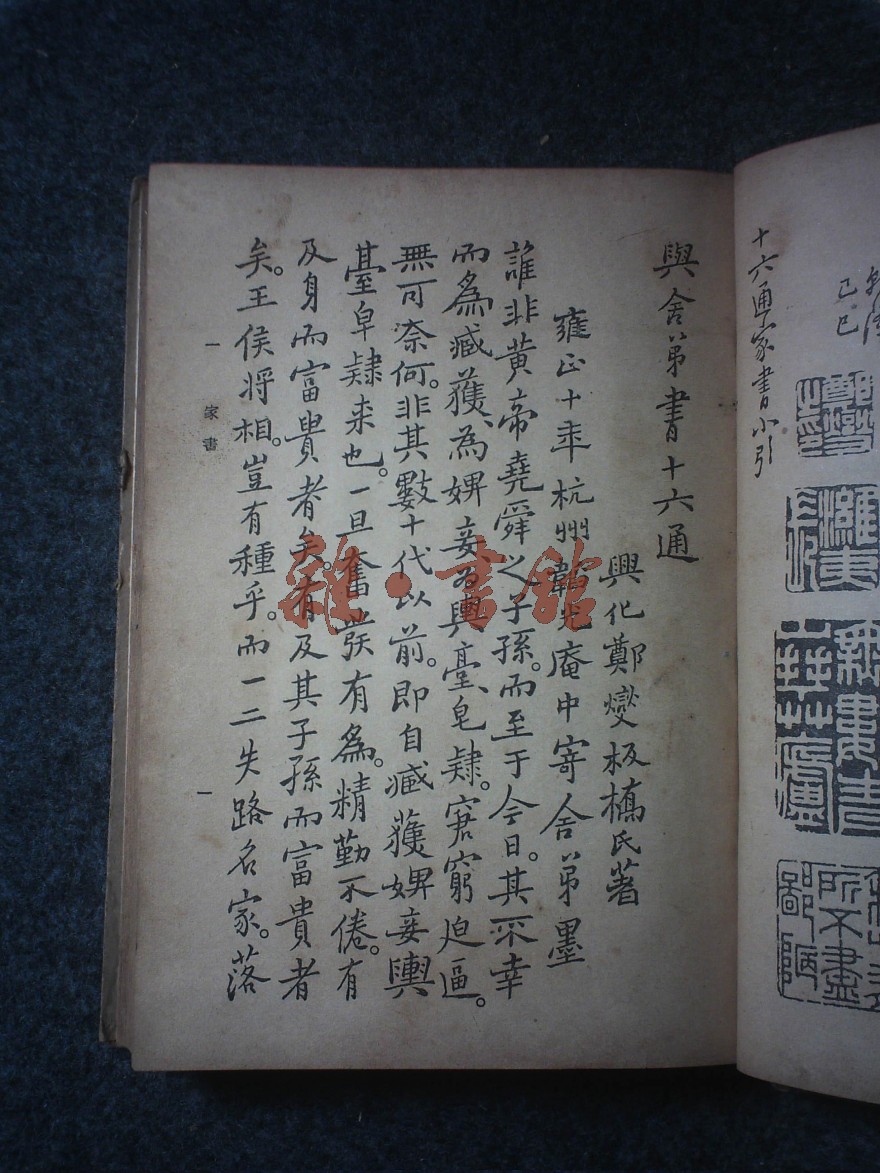 乾隆
己巳
鄭燮
之印
濰夷
長
十六通家書小引
與舍弟書十六通
興化鄭燮板橋氏著
雍正十年杭州韜光庵中寄舍弟墨
誰非黃帝堯舜之子孫。而至于今日。其不幸
而為臧獲、為婢妾、為輿臺、皂隸。窘窮迫逼。
無可奈何。非其數十代以前。即自臧獲婢妾輿
臺皁隸来也。一旦奮發有為。精勤不倦。有
及身而富貴者矣。有及其子孫而富貴者
矣。王侯将相。豈有種乎。而一二失路名家。落
一 家書 一
雜·書館